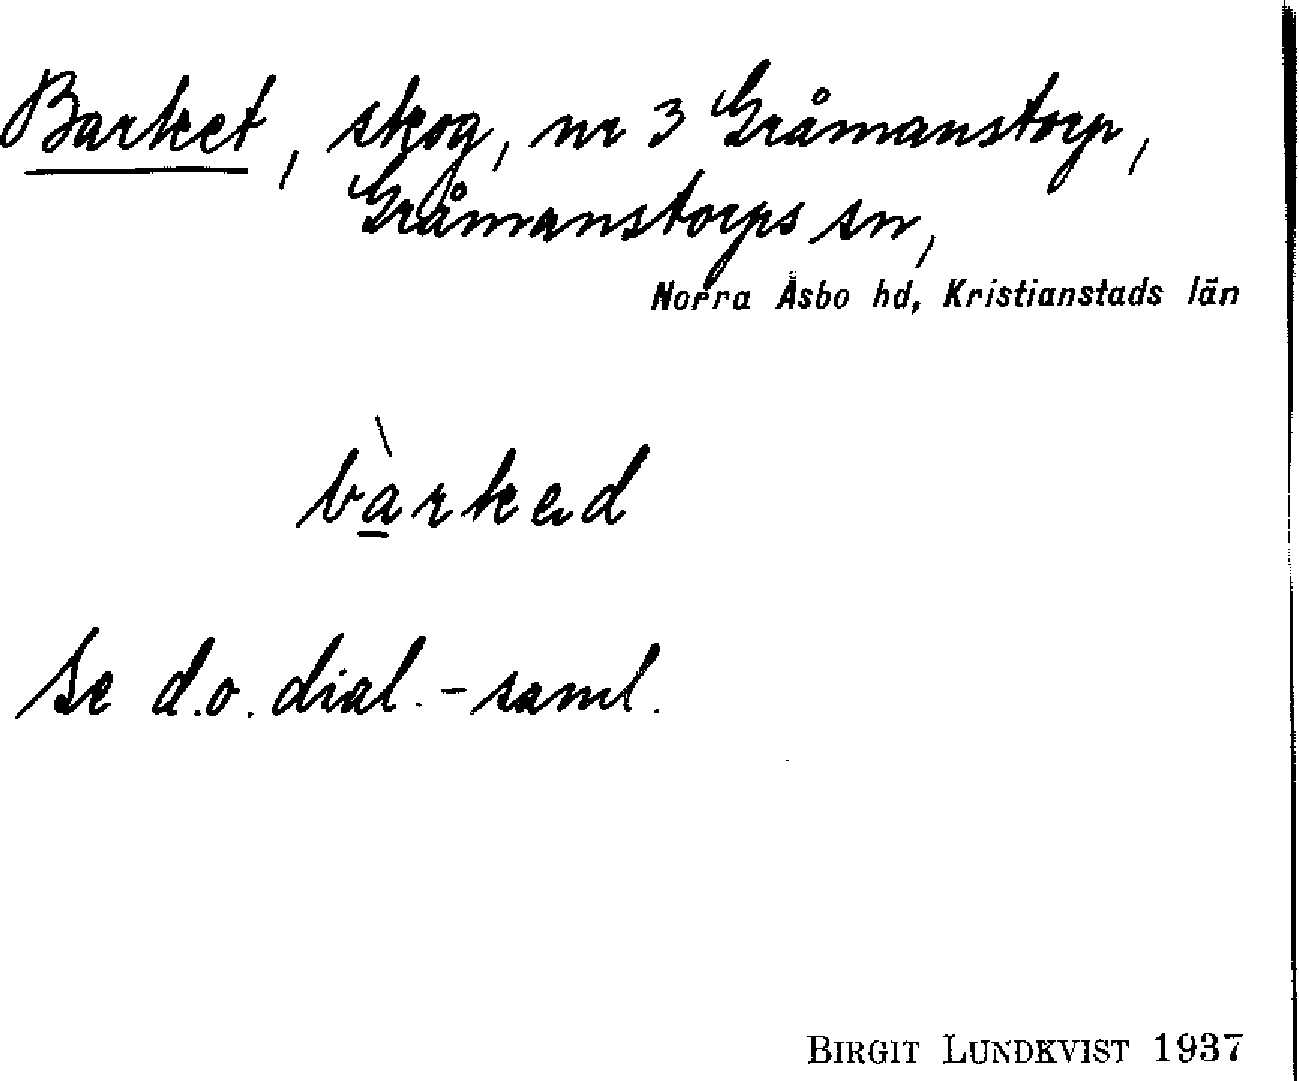 Barket, skog, nr 3 Gråmanstorp,
Gråmanstorps sn,
Norra Åsbo hd, Kristianstads län
bàrked
Se d.o. dial.-saml.
BIRGIT LUNDKVIST 1937